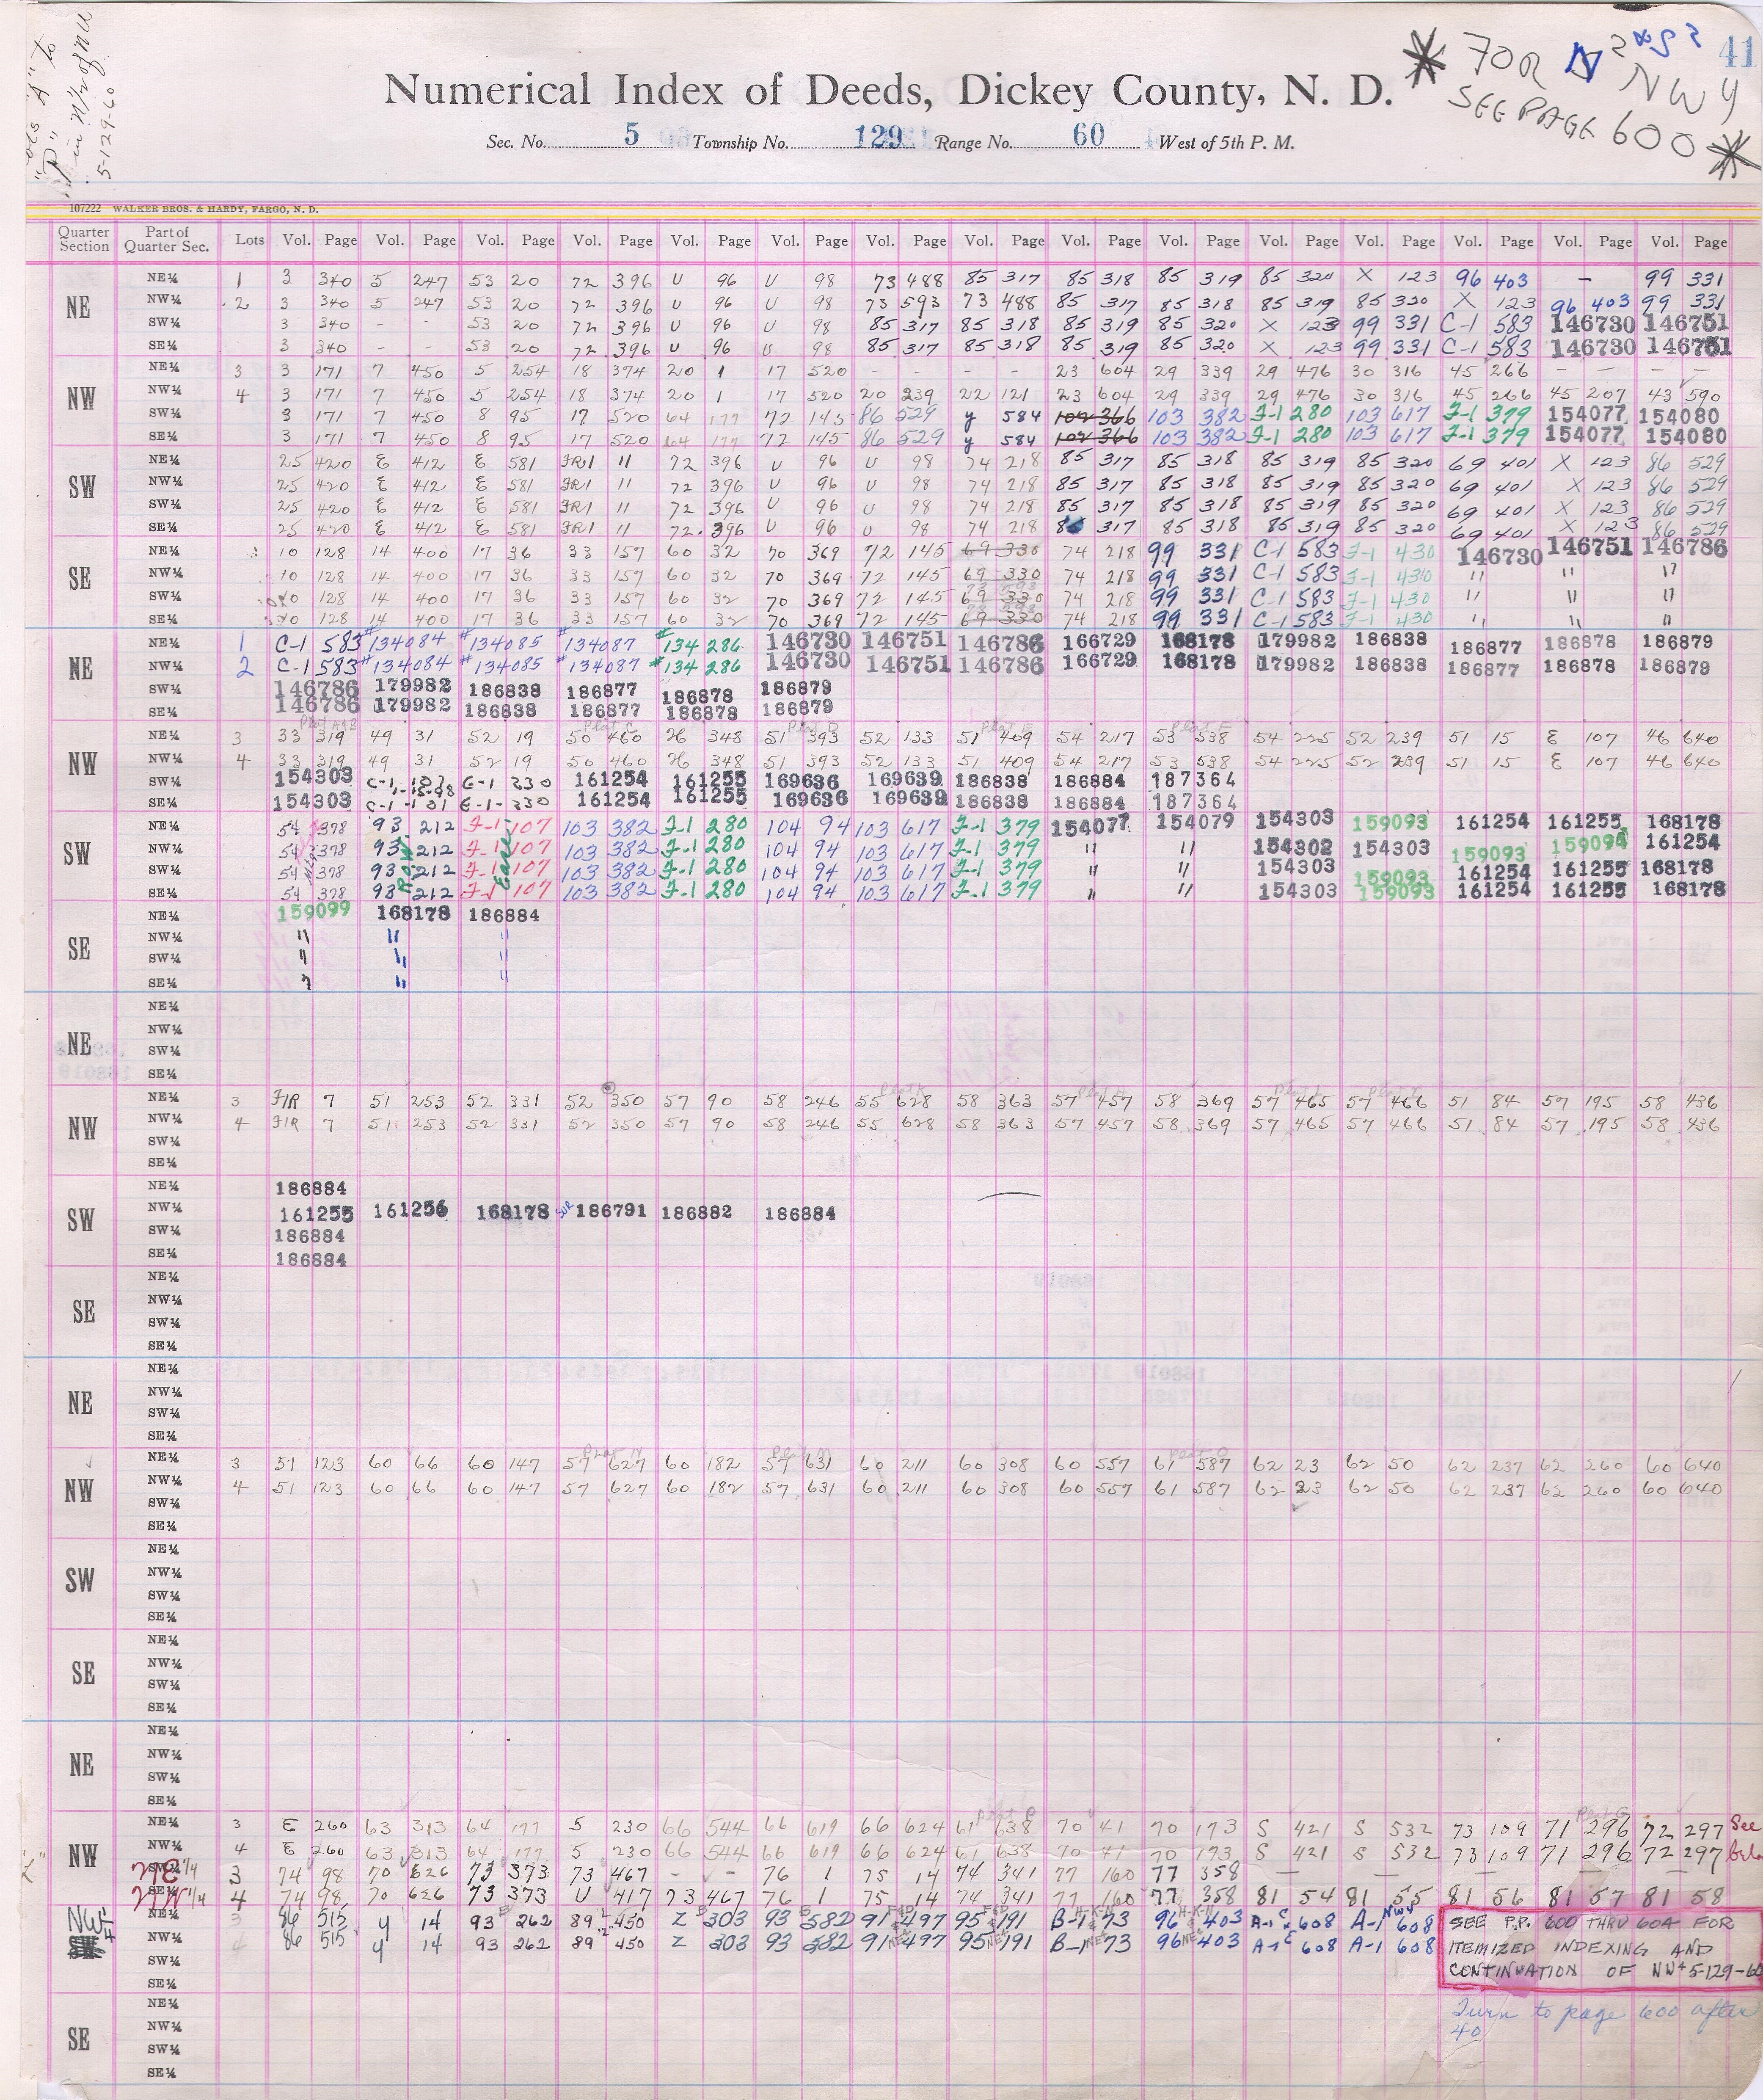 41
* FOR N 2 & S 2
NW 4
SEE PAGE 600 *
5-129-60
Numerical Index of Deeds, Dickey County, N. D.
Sec. No. 5 Township No. 129 Range No. 60 West of 5th P. M.
107222 WALKER BROS. & HARDY, FARGO, N. D.
Quarter Section Part of Quarter Sec. Lots Vol. Page Vol. Page Vol. Page Vol. Page Vol. Page Vol. Page Vol. Page Vol. Page Vol. Page Vol. Page Vol. Page Vol. Page Vol. Page Vol. Page Vol. Page
NE
NE¼ 1 3 340 5 247 53 20 72 396 U 96 U 98 73 488 85 317 85 318 85 319 85 320 X 123 96 403 - 99 331
NW¼ 2 3 340 5 247 53 20 72 396 U 96 U 98 73 593 73 488 85 317 85 318 85 319 85 320 X 123 96 403 99 331
SW¼ 3 340 - - 53 20 72 396 U 96 U 98 85 317 85 318 85 319 85 320 X 123 99 331 C-1 583 146730 146751
SE¼ 3 340 - - 53 20 72 396 U 96 U 98 85 317 85 318 85 319 85 320 X 123 99 331 C-1 583 146730 146751
NW
NE¼ 3 3 171 7 450 5 254 18 374 20 1 17 520 - - - - 23 604 29 339 29 476 30 316 45 266 - - - -
NW¼ 4 3 171 7 450 5 254 18 374 20 1 17 520 20 239 22 121 23 604 29 339 29 476 30 316 45 266 45 207 43 590
SW¼ 3 171 7 450 8 95 17 520 64 177 72 145 86 529 y 584 102 366 103 382 F-1 280 103 617 F-1 379 154077 154080
SE¼ 3 171 7 450 8 95 17 520 64 177 72 145 86 529 y 584 102 366 103 382 F-1 280 103 617 F-1 379 154077 154080
SW
NE¼ 25 420 E 412 E 581 FR1 11 72 396 U 96 U 98 74 218 85 317 85 318 85 319 85 320 69 401 X 123 86 529
NW¼ 25 420 E 412 E 581 FR1 11 72 396 U 96 U 98 74 218 85 317 85 318 85 319 85 320 69 401 X 123 86 529
SW¼ 25 420 E 412 E 581 FR1 11 72 396 U 96 U 98 74 218 85 317 85 318 85 319 85 320 69 401 X 123 86 529
SE¼ 25 420 E 412 E 581 FR1 11 72 396 U 96 U 98 74 218 85 317 85 318 85 319 85 320 69 401 X 123 86 529
SE
NE¼ 10 128 14 400 17 36 33 157 60 32 70 369 72 145 69 330 74 218 99 331 C-1 583 F-1 430 146730 146751 146786
NW¼ 10 128 14 400 17 36 33 157 60 32 70 369 72 145 69 330 74 218 99 331 C-1 583 F-1 430 " " "
SW¼ 10 128 14 400 17 36 33 157 60 32 70 369 72 145 69 330 74 218 99 331 C-1 583 F-1 430 " " "
SE¼ 10 128 14 400 17 36 33 157 60 32 70 369 72 145 69 330 74 218 99 331 C-1 583 F-1 430 " " "
NE
NE¼ 1 C-1 583 #134084 #134085 #134087 #134286 146730 146751 146786 166729 168178 179982 186838 186877 186878 186879
NW¼ 2 C-1 583 #134084 #134085 #134087 #134286 146730 146751 146786 166729 168178 179982 186838 186877 186878 186879
SW¼ 146786 179982 186838 186877 186878 186879
SE¼ 146786 179982 186838 186877 186878 186879
Plat A&B Plat C Plat D Plat E Plat F
NW
NE¼ 3 33 319 49 31 52 19 50 460 H 348 51 393 52 133 51 409 54 217 53 538 54 225 52 239 51 15 E 107 46 640
NW¼ 4 33 319 49 31 52 19 50 460 H 348 51 393 52 133 51 409 54 217 53 538 54 225 52 239 51 15 E 107 46 640
SW¼ 154303 161254 161255 169636 169639 186838 186884 187364
SE¼ 154303 161254 161255 169636 169639 186838 186884 187364
SW
NE¼ 54 378 93 212 F-1 107 103 382 F-1 280 104 94 103 617 F-1 379 154077 154079 154303 159093 161254 161255 168178
NW¼ 54 378 93 212 F-1 107 103 382 F-1 280 104 94 103 617 F-1 379 " " 154302 154303 159093 159094 161254
SW¼ 54 378 93 212 F-1 107 103 382 F-1 280 104 94 103 617 F-1 379 " " 154303 159093 161254 161255 168178
SE¼ 54 378 93 212 F-1 107 103 382 F-1 280 104 94 103 617 F-1 379 " " 154303 159093 161254 161255 168178
SE
NE¼ 159099 168178 186884
NW¼ " " "
SW¼ " " "
SE¼ " " "
NE
NE¼
NW¼
SW¼
SE¼
NW
NE¼ 3 F/R 7 51 253 52 331 52 350 57 90 58 246 55 628 58 363 57 457 58 369 57 465 57 466 51 84 57 195 58 436
NW¼ 4 F/R 7 51 253 52 331 52 350 57 90 58 246 55 628 58 363 57 457 58 369 57 465 57 466 51 84 57 195 58 436
SW¼
SE¼
SW
NE¼ 186884
NW¼ 161255 161256 168178 186791 186882 186884
SW¼ 186884
SE¼ 186884
SE
NE¼
NW¼
SW¼
SE¼
NE
NE¼
NW¼
SW¼
SE¼
NW
NE¼ 3 51 123 60 66 60 147 57 627 60 182 57 631 60 211 60 308 60 557 61 587 62 23 62 50 62 237 62 260 60 640
NW¼ 4 51 123 60 66 60 147 57 627 60 182 57 631 60 211 60 308 60 557 61 587 62 23 62 50 62 237 62 260 60 640
SW¼
SE¼
SW
NE¼
NW¼
SW¼
SE¼
SE
NE¼
NW¼
SW¼
SE¼
NE
NE¼
NW¼
SW¼
SE¼
Plat P Plat G
NW
NE¼ 3 E 260 63 313 64 177 5 230 66 544 66 619 66 624 61 638 70 41 70 173 S 421 S 532 73 109 71 296 72 297 See
NW¼ 4 E 260 63 313 64 177 5 230 66 544 66 619 66 624 61 638 70 41 70 173 S 421 S 532 73 109 71 296 72 297
NE 1/4 3 74 98 70 626 73 373 73 467 - - 76 1 75 14 74 341 77 160 77 358
NW 1/4 4 74 98 70 626 73 373 U 417 73 467 76 1 75 14 74 341 77 160 77 358 81 54 81 55 81 56 81 57 81 58
NW 4
NE¼ 3 86 515 y 14 93 262 89 450 Z 303 93 582 91 497 95 191 B-1 73 96 403 A-1 608 A-1 608
NW¼ 4 86 515 y 14 93 262 89 450 Z 303 93 582 91 497 95 191 B-1 73 96 403 A-1 608 A-1 608
SW¼
SE¼
SEE P.P. 600 THRU 604 FOR
ITEMIZED INDEXING AND
CONTINUATION OF NW4 5-129-60
SE
NE¼
NW¼
SW¼
SE¼
Turn to page 600 after
40